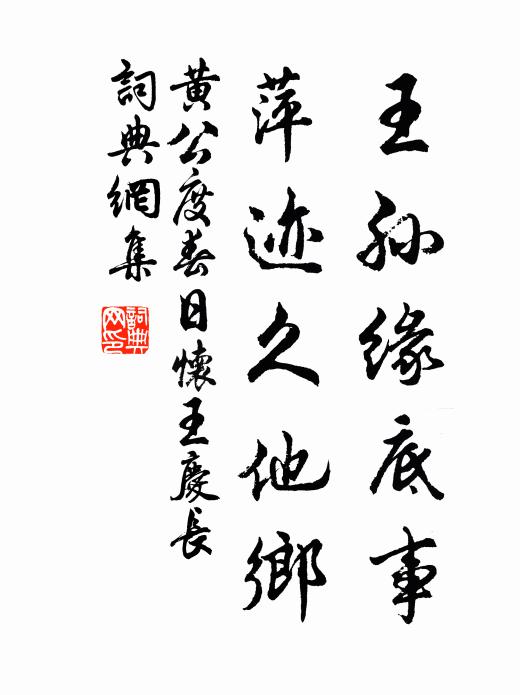 王孙缘底事
萍迹久他鄉
黄公度春日懷王慶長
詞典網集
詞典
网印